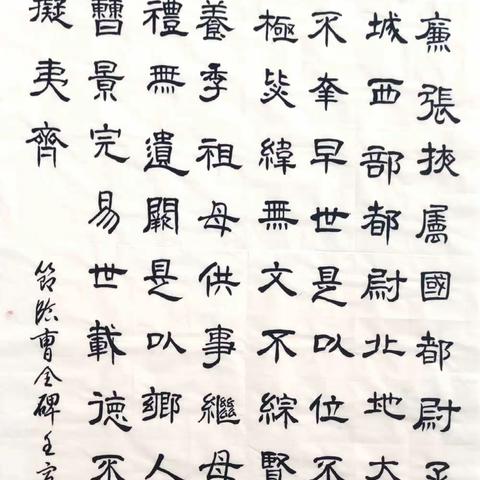 廉張掖屬國都尉丞
城西部都尉北地大
不幸早世是以位不
極毖緯無文不綜賢
養季祖母供事繼母
禮無遺闕是以鄉人
曹景完易世載德不
擬夷齊
節臨曹全碑王